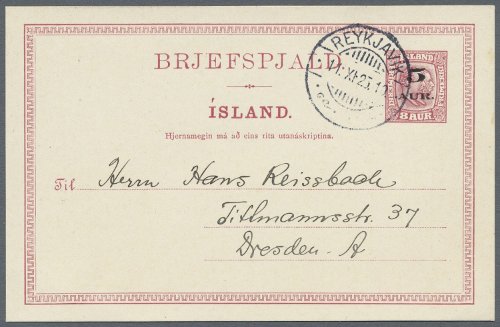 BRJEFSPJALD.
REYKJAVIK
ÍSLAND
5
AUR.
8 AUR.
ÍSLAND.
Hjernamegin má að eins rita utanáskriptina.
Til Herrn Hans Reissbach
Tittmannsstr. 37
Dresden-A